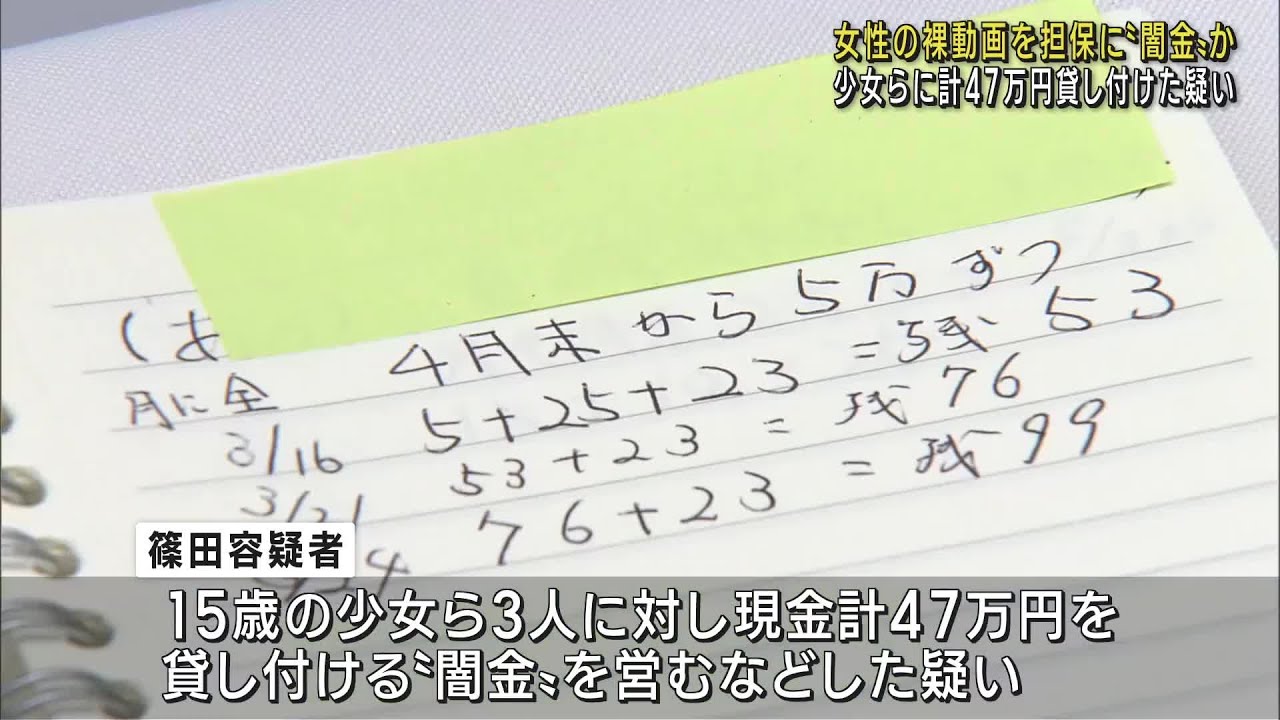 女性の裸動画を担保に〝闇金〟か
少女らに計47万円貸し付けた疑い
(あ
4月末から5万ずつ
月に全
5+25+23=残53
3/16 53+23=残76
3/21 76+23=残99
篠田容疑者
15歳の少女ら3人に対し現金計47万円を
貸し付ける〝闇金〟を営むなどした疑い